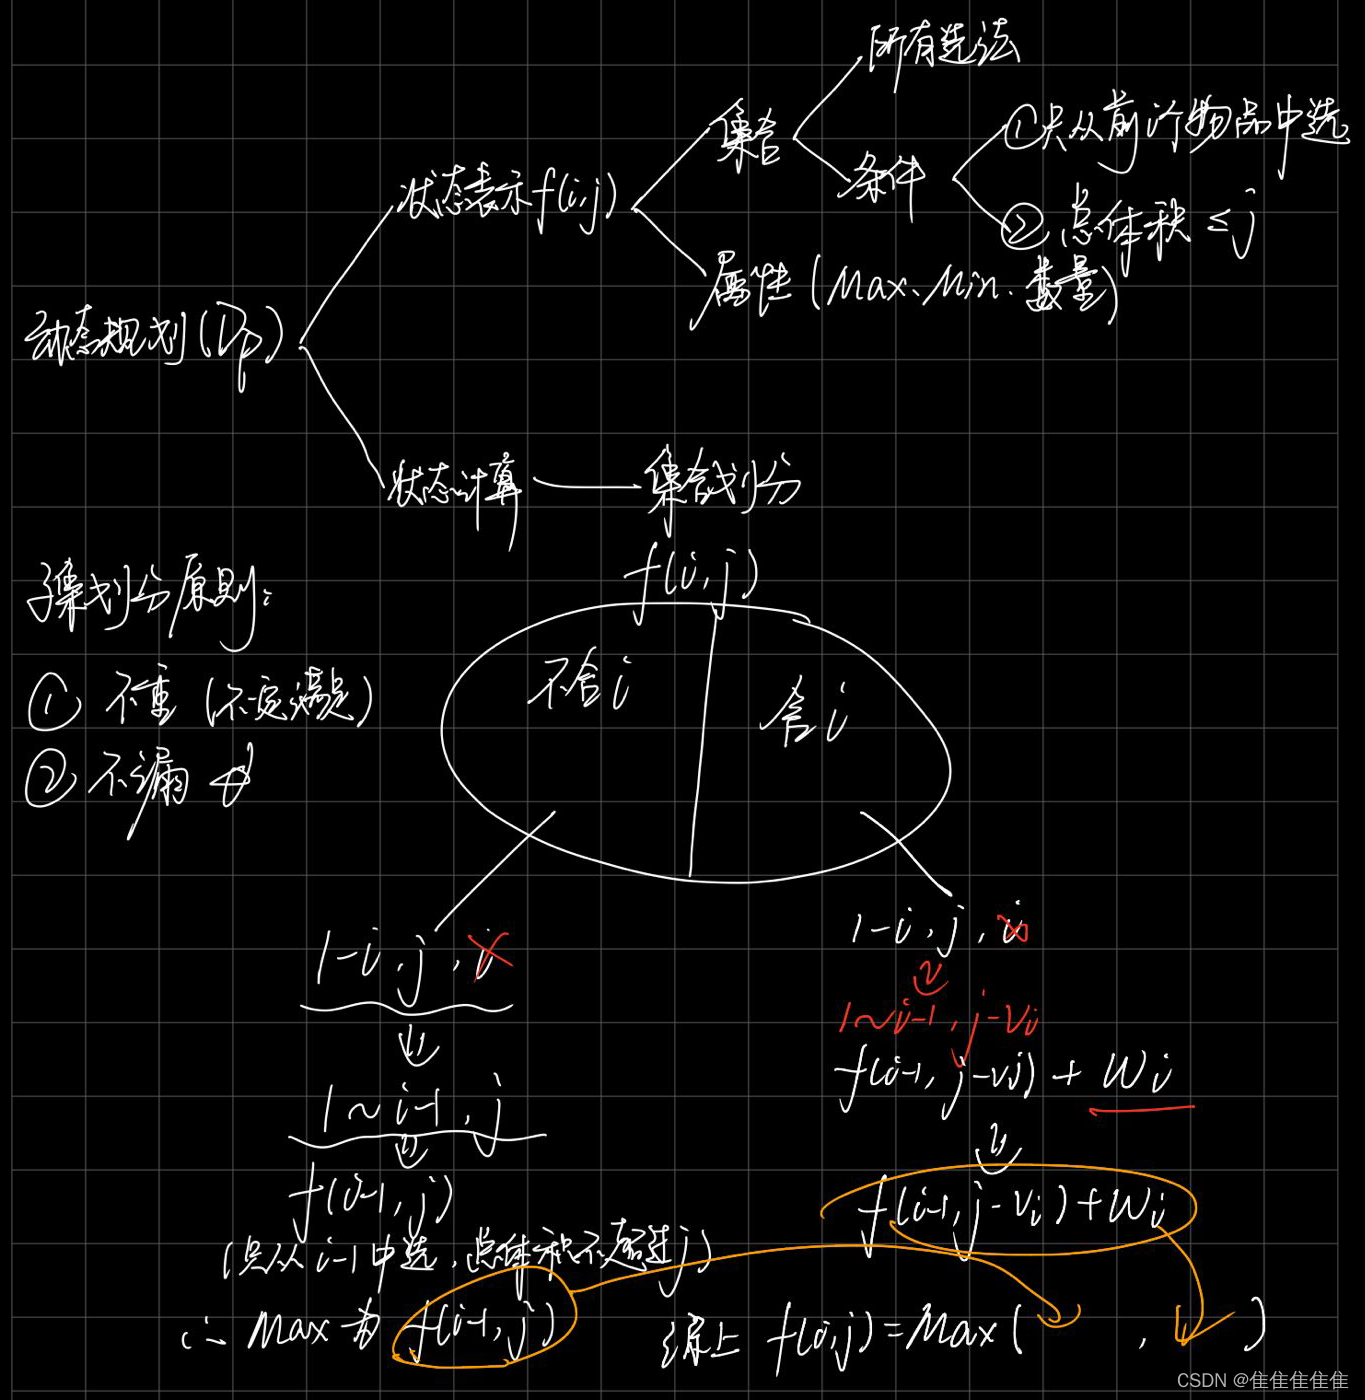 所有选法
集合
①只从前i个物品中选
条件
状态表示f(i,j)
②总体积≤j
属性(Max、Min、数量)
动态规划(Dp)
状态计算
集合划分
f(i,j)
子集划分原则:
不含i
含i
①不重(不一定满足)
②不漏
1-i,j,i
1-i,j,i
1~i-1,j-Vi
f(i-1,j-vi)+Wi
1~i-1,j
f(i-1,j)
f(i-1,j-Vi)+Wi
(只从i-1中选,总体积不超过j)
∴Max为f(i-1,j)
综上 f(i,j)=Max( , )
CSDN @隹隹隹隹隹